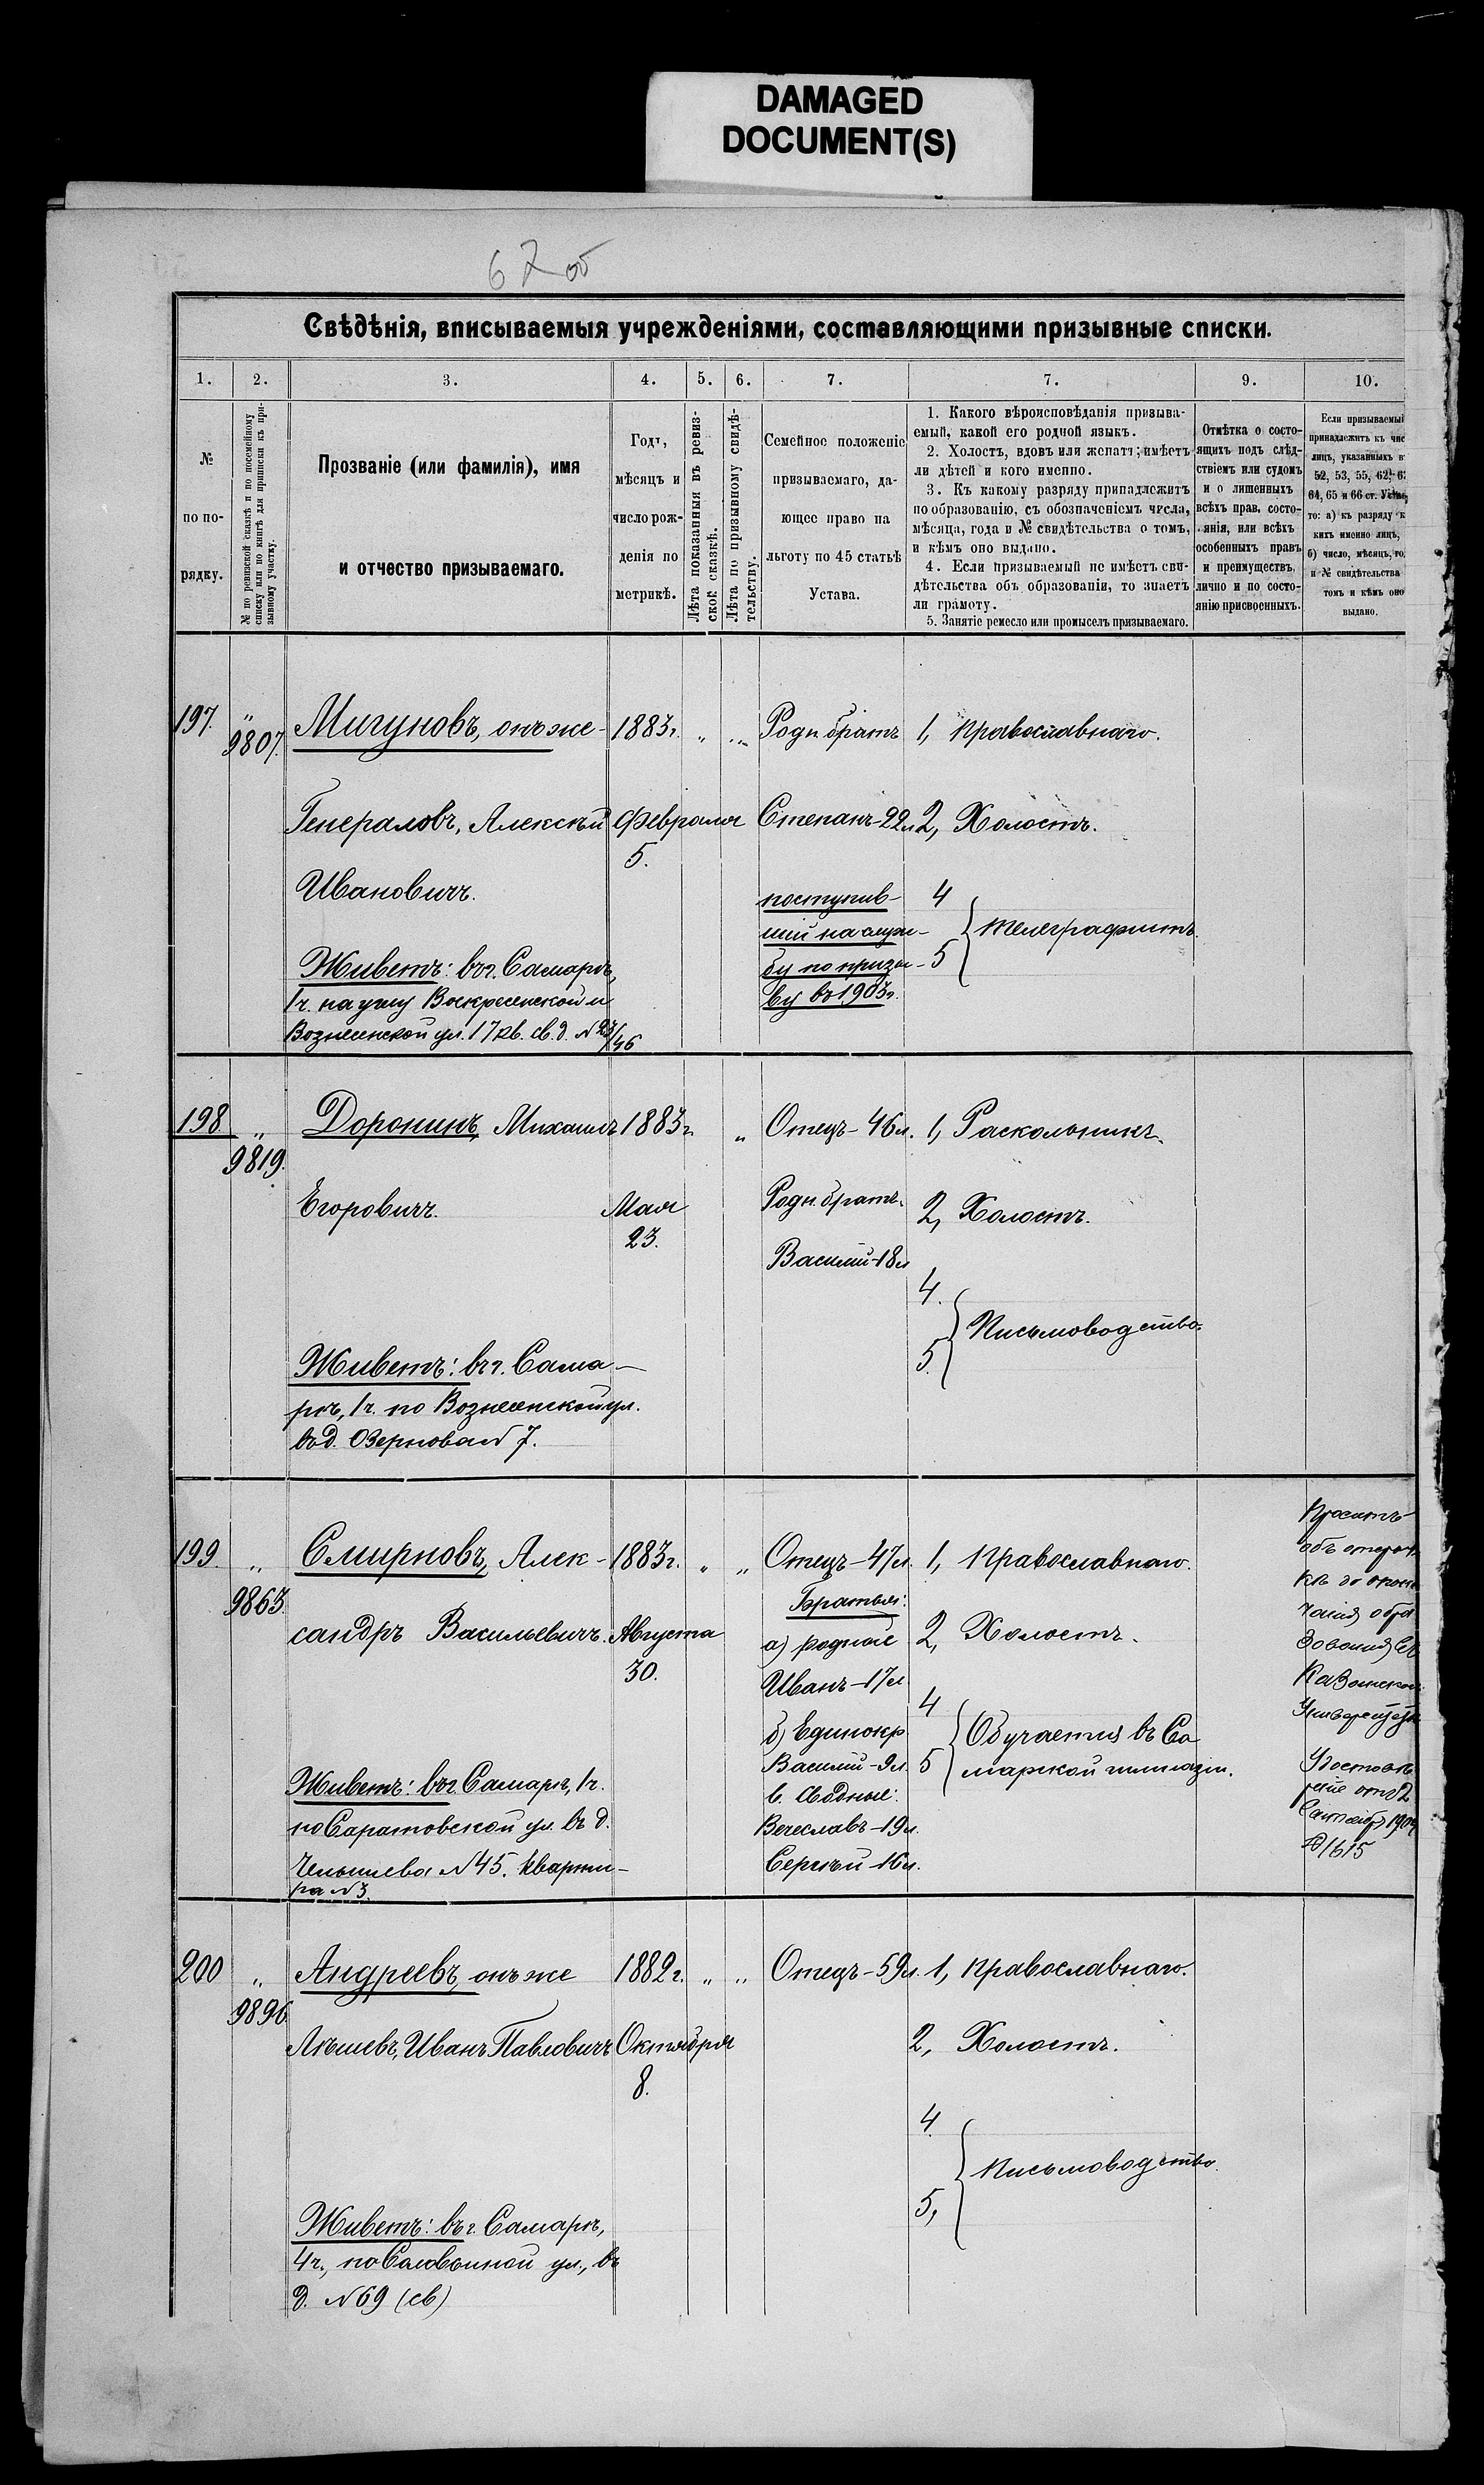 DAMAGED
DOCUMENT(S)
67 об
Свѣдѣнія, вписываемыя учрежденіями, составляющими призывные списки.
1.
2.
3.
4.
5.
6.
7.
7.
9.
10.
№
по по-
рядку.
№ по ревизской сказкѣ и по посемейному
списку или по книгѣ для приписки къ при-
зывному участку.
Прозваніе (или фамилія), имя
и отчество призываемаго.
Годъ,
мѣсяцъ и
число рож-
денія по
метрикѣ.
Лѣта показанныя въ ревиз-
ской сказкѣ.
Лѣта по призывному свидѣ-
тельству.
Семейное положеніе
призываемаго, да-
ющее право на
льготу по 45 статьѣ
Устава.
1. Какого вѣроисповѣданія призыва-
емый, какой его родной языкъ.
2. Холостъ, вдовъ или женатъ; имѣетъ
ли дѣтей и кого именно.
3. Къ какому разряду принадлежитъ
по образованію, съ обозначеніемъ числа,
мѣсяца, года и № свидѣтельства о томъ,
и кѣмъ оно выдано.
4. Если призываемый не имѣетъ сви-
дѣтельства объ образованіи, то знаетъ
ли грамоту.
5. Занятіе ремесло или промыселъ призываемаго.
Отмѣтка о состо-
ящихъ подъ слѣд-
ствіемъ или судомъ
и о лишенныхъ
всѣхъ правъ состо-
янія, или всѣхъ
особенныхъ правъ
и преимуществъ,
лично и по состо-
янію присвоенныхъ.
Если призываемый
принадлежитъ къ чис
лицъ, указанныхъ в
52, 53, 55, 62,
64, 65 и 66 ст.
то: а) къ разряду к
кихъ именно лицъ,
б) число, мѣсяцъ, го
и № свидѣтельства
томъ и кѣмъ оно
выдано.
197. „ 9807.
Мигуновъ, онъ же
Генераловъ, Алексѣй
Ивановичъ.
Живетъ: въ г. Самарѣ,
1 ч. на углу Воскресенской и
Вознесенской ул. 17 кв. св. д. №23/46
1883 г.
Февраля
5.
„ „
Родн. братъ
Степанъ-22 л
поступив-
шій на служ-
бу по призы-
ву въ 1903 г.
1, Православнаго.
2, Холостъ.
4
5
Телеграфистъ.
198 „ 9819.
Доронинъ, Михаилъ
Егоровичъ.
Живетъ: въ г. Сама-
рѣ, 1 ч. по Вознесенской ул.
въ д. Озернова № 7.
1883 г.
Мая
23.
„
Отецъ - 46 л.
Родн. братъ
Василій-18 л
1, Раскольникъ.
2, Холостъ.
4.
5.
Письмоводство.
199 „ 9863.
Смирновъ, Алек-
сандръ Васильевичъ.
Живетъ: въ г. Самарѣ, 1 ч.
по Саратовской ул. въ д.
Челышева №45. Кварти-
ра № 3.
1883 г.
Августа
30.
„ „
Отецъ - 47 л.
Братья:
а) родные
Иванъ - 17 л
б) Единокр
Василій - 9 л.
в. Сводные:
Вечеславъ - 19 л.
Сергѣй - 16 л.
1, Православнаго.
2, Холостъ.
4
5
Обучается въ Са
марской гимназіи.
Проситъ
объ отсроч
кѣ до окон
чанія обра
зованія въ
Казанском
Университ
Удостовѣ
реніе отъ 2
Сентября 1904
№ 1615
200 „ 9896.
Андреевъ, онъ же
Лѣшевъ, Иванъ Павловичъ
Живетъ: въ г. Самарѣ,
4 ч., по Соловьиной ул., въ
д. №69 (св)
1882 г.
Октября
8.
„ „
Отецъ - 59 л.
1, Православнаго.
2, Холостъ.
4.
5,
Письмоводство.